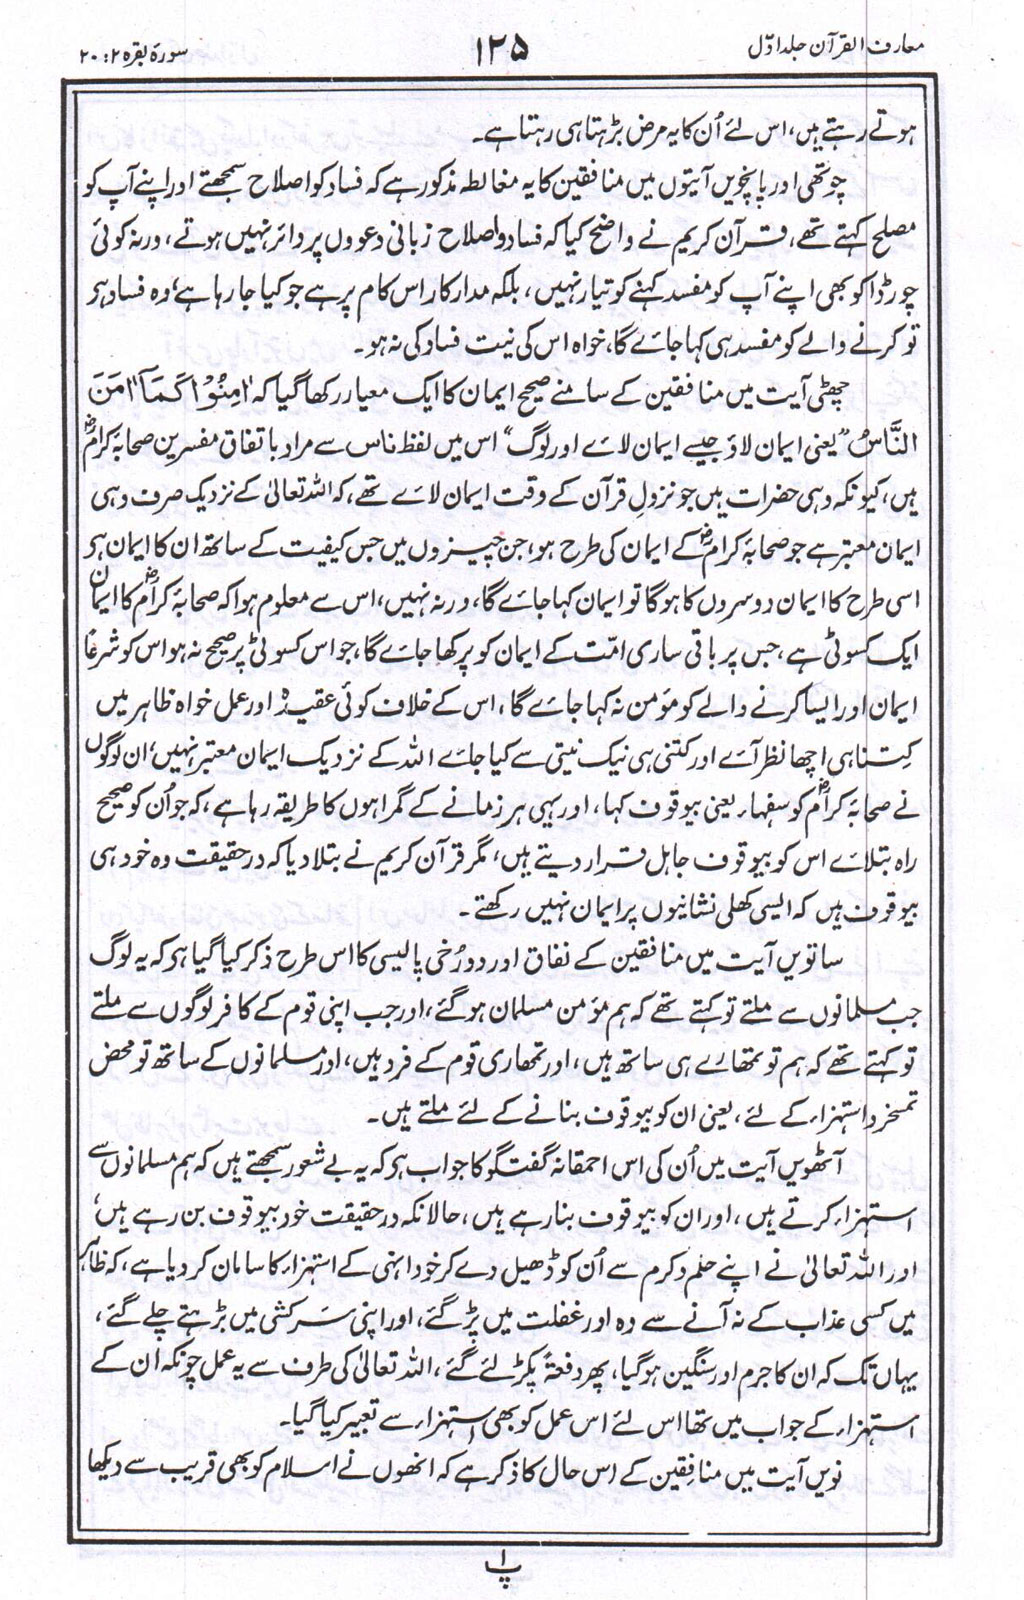 معارف القرآن جلد اوّل
۱۲۵
سورۂ بقرہ ۲ : ۲۰
ہوتے رہتے ہیں، اس لئے اُن کا یہ مرض بڑہتا ہی رہتا ہے۔
چوتھی اور پانچویں آیتوں میں منافقین کا یہ مغالطہ مذکور ہے کہ فساد کو اصلاح سمجھتے اور اپنے آپ کو
مصلح کہتے تھے، قرآن کریم نے واضح کیا کہ فساد و اصلاح زبانی دعووں پر دائر نہیں ہوتے، ورنہ کوئی
چور ڈاکو بھی اپنے آپ کو مفسد کہنے کو تیار نہیں، بلکہ مدار کار اس کام پر ہے جو کیا جا رہا ہے، وہ فساد ہر
تو کرنے والے کو مفسد ہی کہا جائے گا، خواہ اس کی نیت فساد کی نہ ہو۔
چھٹی آیت میں منافقین کے سامنے صحیح ایمان کا ایک معیار رکھا گیا کہ اٰمِنُوْا كَمَآ اٰمَنَ
النَّاسُ "یعنی ایمان لاؤ جیسے ایمان لائے اور لوگ" اس میں لفظ ناس سے مراد باتفاق مفسرین صحابۂ کرامؓ
ہیں، کیونکہ وہی حضرات ہیں جو نزولِ قرآن کے وقت ایمان لائے تھے، کہ اللہ تعالیٰ کے نزدیک صرف وہی
ایمان معتبر ہے جو صحابۂ کرامؓ کے ایمان کی طرح ہو، جن چیزوں میں جس کیفیت کے ساتھ ان کا ایمان ہر
اسی طرح کا ایمان دوسروں کا ہوگا تو ایمان کہا جائے گا، ورنہ نہیں، اس سے معلوم ہوا کہ صحابۂ کرامؓ کا ایمان
ایک کسوٹی ہے، جس پر باقی ساری امّت کے ایمان کو پرکھا جائے گا، جو اس کسوٹی پر صحیح نہ ہو اس کو شرعاً
ایمان اور ایسا کرنے والے کو مؤمن نہ کہا جائے گا، اس کے خلاف کوئی عقیدہ اور عمل خواہ ظاہر میں
کتنا ہی اچھا نظر آئے اور کتنی ہی نیک نیتی سے کیا جائے اللہ کے نزدیک ایمان معتبر نہیں، ان لوگوں
نے صحابۂ کرامؓ کو سفہاء یعنی بیوقوف کہا، اور یہی ہر زمانے کے گمراہوں کا طریقہ رہا ہے، کہ جو اُن کو صحیح
راہ بتلائے اس کو بیوقوف جاہل قرار دیتے ہیں، مگر قرآن کریم نے بتلا دیا کہ در حقیقت وہ خود ہی
بیوقوف ہیں کہ ایسی کھلی نشانیوں پر ایمان نہیں رکھتے۔
ساتویں آیت میں منافقین کے نفاق اور دورُخی پالیسی کا اس طرح ذکر کیا گیا ہر کہ یہ لوگ
جب مسلمانوں سے ملتے تو کہتے تھے کہ ہم مؤمن مسلمان ہوگئے، اور جب اپنی قوم کے کافر لوگوں سے ملتے
تو کہتے تھے کہ ہم تو تمھارے ہی ساتھ ہیں، اور تمھاری قوم کے فرد ہیں، اور مسلمانوں کے ساتھ تو محض
تمسخر و استہزاء کے لئے، یعنی ان کو بیوقوف بنانے کے لئے ملتے ہیں۔
آٹھویں آیت میں اُن کی اس احمقانہ گفتگو کا جواب ہر کہ یہ بے شعور سمجھتے ہیں کہ ہم مسلمانوں سے
استہزاء کرتے ہیں، اور ان کو بیوقوف بنا رہے ہیں، حالانکہ در حقیقت خود بیوقوف بن رہے ہیں،
اور اللہ تعالیٰ نے اپنے حلم و کرم سے اُن کو ڈھیل دے کر خود انہی کے استہزاء کا سامان کر دیا ہے، کہ ظاہر
میں کسی عذاب کے نہ آنے سے وہ اور غفلت میں پڑ گئے، اور اپنی سرکشی میں بڑہتے چلے گئے،
یہاں تک کہ ان کا جرم اور سنگین ہوگیا، پھر دفعۃً پکڑ لئے گئے، اللہ تعالیٰ کی طرف سے یہ عمل چونکہ ان کے
استہزاء کے جواب میں تھا اس لئے اس عمل کو بھی استہزاء سے تعبیر کیا گیا۔
نویں آیت میں منافقین کے اس حال کا ذکر ہے کہ انھوں نے اسلام کو بھی قریب سے دیکھا
پ ۱